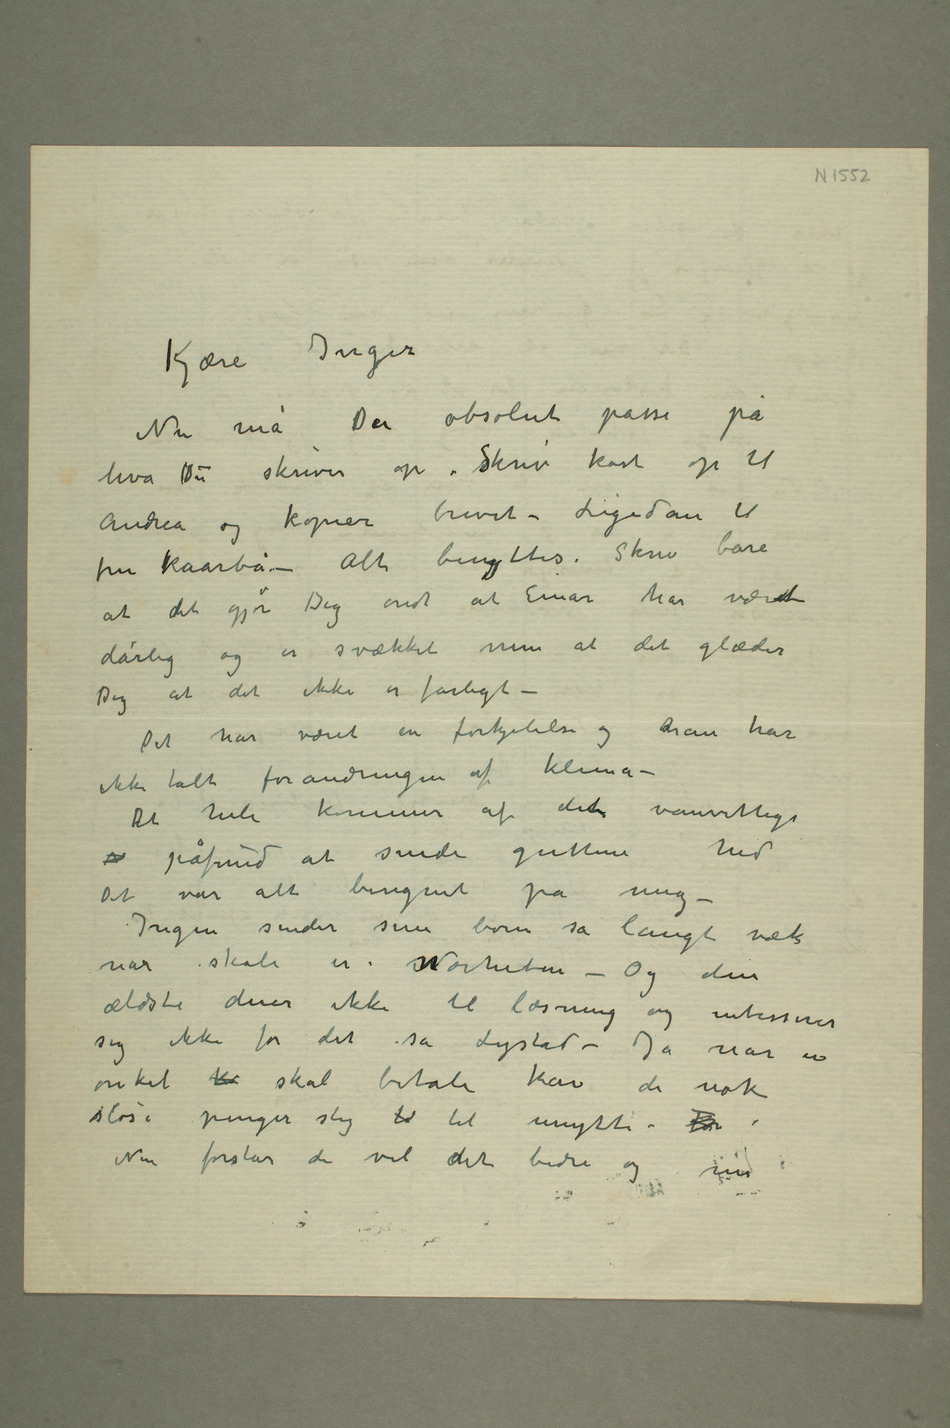 N 1552
Kjære Inger
Nu må Du absolut passe på
hva Du skriver op. Skriv kort op til
Andrea og kopier brevet – Ligedan til
fru Kaarbø. – Alt benyttes. Skriv bare
at det gjør Dig ondt at Einar har været
dårlig og er svækket men at det glæder
Dig at det ikke er farligt –
Det har været en forkjølelse og han har
ikke tålt forandringen af klima –
Det hele kommer af det vanvittige
påfund at sende guttene hid
Det var alt beregnet på mig –
Ingen sender sine børn så langt væk
når skole er i Nærheten – Og den
ældste duer ikke til læsning og interesserer
sig ikke for det så Lystad – Ja når en
onkel skal betale kan de nok
sløse penger slig til til unytte.
Nu forstår de vel det bedre og nu